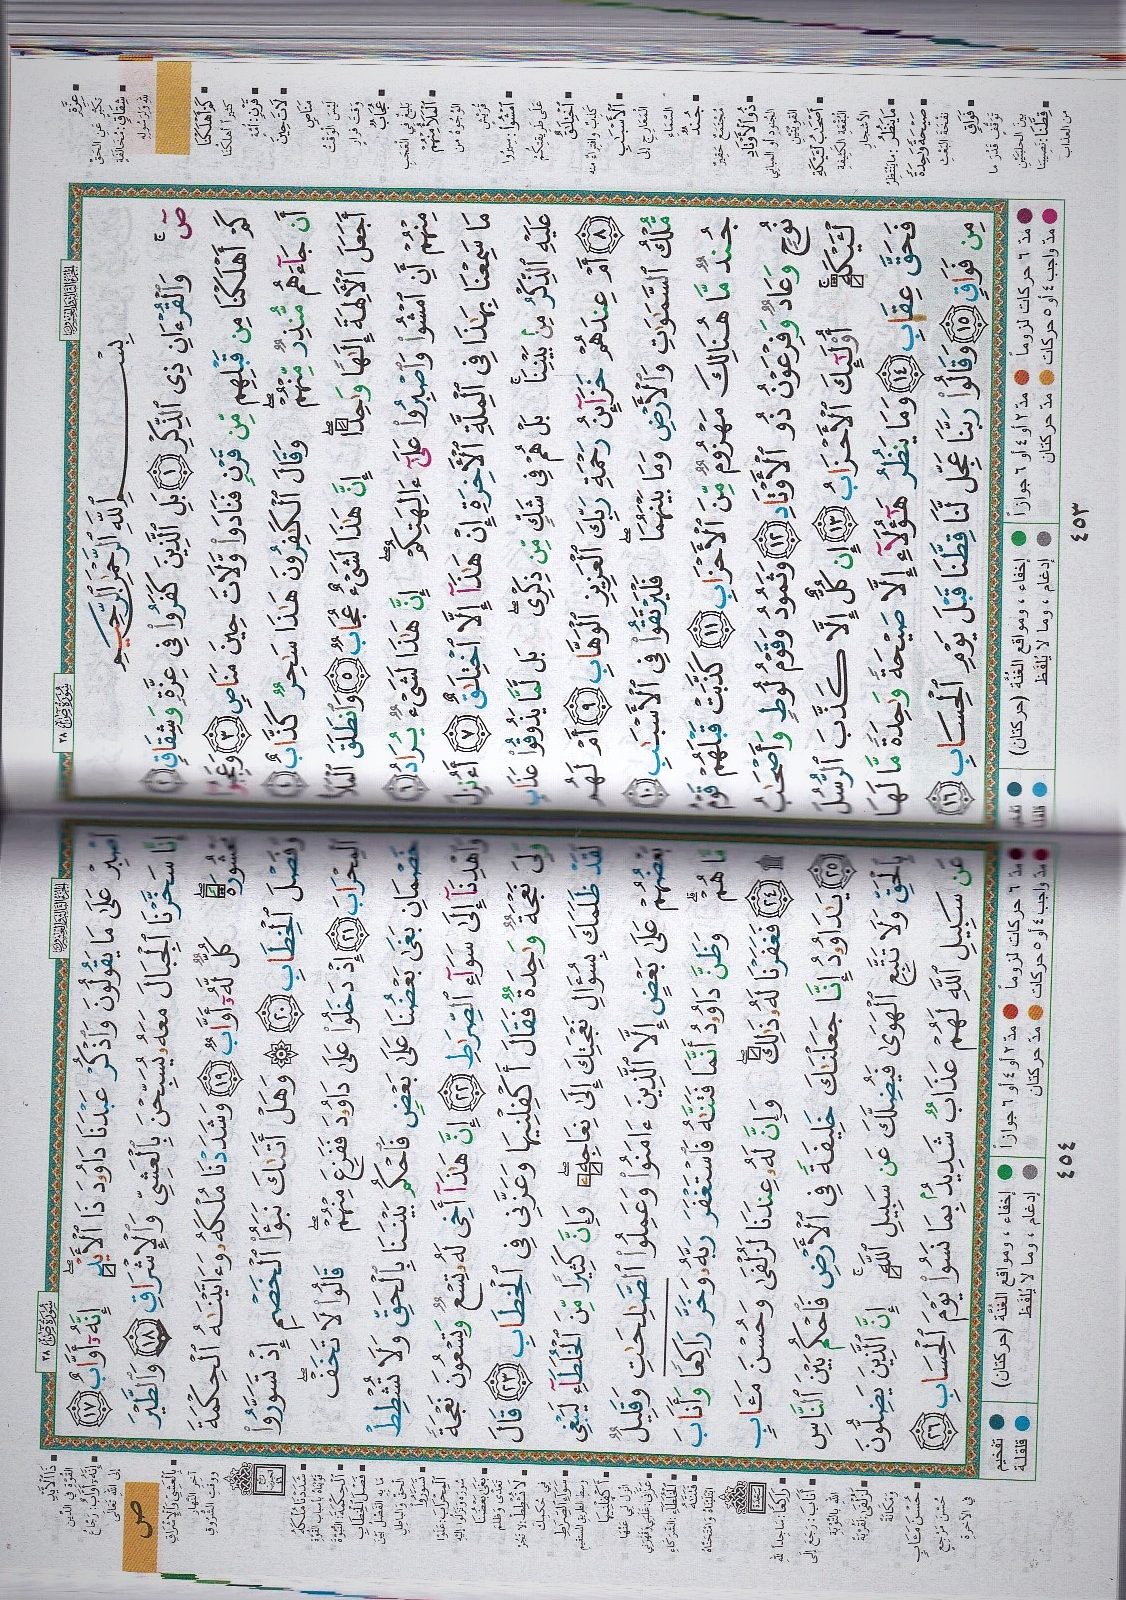 سُورَةُ صٓ ٣٨
الجزء الثالث والعشرون
بِسْمِ ٱللَّهِ ٱلرَّحْمَٰنِ ٱلرَّحِيمِ
صٓ ۚ وَٱلْقُرْءَانِ ذِى ٱلذِّكْرِ ١ بَلِ ٱلَّذِينَ كَفَرُوا۟ فِى عِزَّةٍ وَشِقَاقٍ ٢
كَمْ أَهْلَكْنَا مِن قَبْلِهِم مِّن قَرْنٍ فَنَادَوا۟ وَّلَاتَ حِينَ مَنَاصٍ ٣ وَعَجِبُوٓا۟
أَن جَآءَهُم مُّنذِرٌ مِّنْهُمْ ۖ وَقَالَ ٱلْكَٰفِرُونَ هَٰذَا سَٰحِرٌ كَذَّابٌ ٤
أَجَعَلَ ٱلْءَالِهَةَ إِلَٰهًا وَٰحِدًا ۖ إِنَّ هَٰذَا لَشَىْءٌ عُجَابٌ ٥ وَٱنطَلَقَ ٱلْمَلَأُ
مِنْهُمْ أَنِ ٱمْشُوا۟ وَٱصْبِرُوا۟ عَلَىٰٓ ءَالِهَتِكُمْ ۖ إِنَّ هَٰذَا لَشَىْءٌ يُرَادُ ٦
مَا سَمِعْنَا بِهَٰذَا فِى ٱلْمِلَّةِ ٱلْءَاخِرَةِ إِنْ هَٰذَآ إِلَّا ٱخْتِلَٰقٌ ٧ أَءُنزِلَ
عَلَيْهِ ٱلذِّكْرُ مِنۢ بَيْنِنَا ۚ بَلْ هُمْ فِى شَكٍّ مِّن ذِكْرِى ۖ بَل لَّمَّا يَذُوقُوا۟ عَذَابِ
٨ أَمْ عِندَهُمْ خَزَآئِنُ رَحْمَةِ رَبِّكَ ٱلْعَزِيزِ ٱلْوَهَّابِ ٩ أَمْ لَهُم
مُّلْكُ ٱلسَّمَٰوَٰتِ وَٱلْأَرْضِ وَمَا بَيْنَهُمَا ۖ فَلْيَرْتَقُوا۟ فِى ٱلْأَسْبَٰبِ ١٠
جُندٌ مَّا هُنَالِكَ مَهْزُومٌ مِّنَ ٱلْأَحْزَابِ ١١ كَذَّبَتْ قَبْلَهُمْ قَوْمُ
نُوحٍ وَعَادٌ وَفِرْعَوْنُ ذُو ٱلْأَوْتَادِ ١٢ وَثَمُودُ وَقَوْمُ لُوطٍ وَأَصْحَٰبُ
لْـَٔيْكَةِ ۚ أُو۟لَٰٓئِكَ ٱلْأَحْزَابُ ١٣ إِن كُلٌّ إِلَّا كَذَّبَ ٱلرُّسُلَ
فَحَقَّ عِقَابِ ١٤ وَمَا يَنظُرُ هَٰٓؤُلَآءِ إِلَّا صَيْحَةً وَٰحِدَةً مَّا لَهَا
مِن فَوَاقٍ ١٥ وَقَالُوا۟ رَبَّنَا عَجِّل لَّنَا قِطَّنَا قَبْلَ يَوْمِ ٱلْحِسَابِ ١٦
مدّ ٦ حركات لزوماً مدّ ٢ أو ٤ أو ٦ جوازاً إخفاء ، ومواقع الغُنَّة (حركتان) تفخيم
مدّ واجب ٤ أو ٥ حركات مدّ حركتان إدغام ، وما لا يُلفَظ قلقلة
٤٥٣
عِزَّةٍ
تكبّر عن الحق
شِقَاقٍ: مخالفة
لله ولرسوله
كَمْ أَهْلَكْنَا
كثيراً أهلكنا
قَرْنٍ: أمّة
لَاتَ حِينَ
مَنَاصٍ
ليس الوقت
وقت فرار
عُجَابٌ
بليغ في العجب
ٱلْمَلَأُ مِنْهُمْ
الوجوه من
قريش
ٱمْشُوا۟: سيروا
على طريقتكم
ٱخْتِلَٰقٌ
كذب وافتراء منه
ٱلْأَسْبَٰبِ
المعارج إلى
السماء
جُندٌ
مجتمع حقير
ذُو ٱلْأَوْتَادِ
الجنود أو المباني
القويّتين
أَصْحَٰبُ لْـَٔيْكَةِ
البقعة الكثيفة
الأشجار
مَا يَنظُرُ: ما ينتظر
صَيْحَةً وَٰحِدَةً
نفخة البعث
فَوَاقٍ
توقّف قدر ما
بين الحلبتين
قِطَّنَا: نصيبنا
من العذاب
سُورَةُ صٓ ٣٨
الجزء الثالث والعشرون
ٱصْبِرْ عَلَىٰ مَا يَقُولُونَ وَٱذْكُرْ عَبْدَنَا دَاوُۥدَ ذَا ٱلْأَيْدِ ۖ إِنَّهُۥٓ أَوَّابٌ ١٧
إِنَّا سَخَّرْنَا ٱلْجِبَالَ مَعَهُۥ يُسَبِّحْنَ بِٱلْعَشِىِّ وَٱلْإِشْرَاقِ ١٨ وَٱلطَّيْرَ
مَحْشُورَةً ۖ كُلٌّ لَّهُۥٓ أَوَّابٌ ١٩ وَشَدَدْنَا مُلْكَهُۥ وَءَاتَيْنَٰهُ ٱلْحِكْمَةَ
وَفَصْلَ ٱلْخِطَابِ ٢٠ ۞ وَهَلْ أَتَىٰكَ نَبَؤُا۟ ٱلْخَصْمِ إِذْ تَسَوَّرُوا۟
ٱلْمِحْرَابَ ٢١ إِذْ دَخَلُوا۟ عَلَىٰ دَاوُۥدَ فَفَزِعَ مِنْهُمْ ۖ قَالُوا۟ لَا تَخَفْ ۖ
خَصْمَانِ بَغَىٰ بَعْضُنَا عَلَىٰ بَعْضٍ فَٱحْكُم بَيْنَنَا بِٱلْحَقِّ وَلَا تُشْطِطْ
وَٱهْدِنَآ إِلَىٰ سَوَآءِ ٱلصِّرَٰطِ ٢٢ إِنَّ هَٰذَآ أَخِى لَهُۥ تِسْعٌ وَتِسْعُونَ نَعْجَةً
وَلِىَ نَعْجَةٌ وَٰحِدَةٌ فَقَالَ أَكْفِلْنِيهَا وَعَزَّنِى فِى ٱلْخِطَابِ ٢٣ قَالَ
لَقَدْ ظَلَمَكَ بِسُؤَالِ نَعْجَتِكَ إِلَىٰ نِعَاجِهِۦ ۖ وَإِنَّ كَثِيرًا مِّنَ ٱلْخُلَطَآءِ لَيَبْغِى
بَعْضُهُمْ عَلَىٰ بَعْضٍ إِلَّا ٱلَّذِينَ ءَامَنُوا۟ وَعَمِلُوا۟ ٱلصَّٰلِحَٰتِ وَقَلِيلٌ
مَّا هُمْ ۗ وَظَنَّ دَاوُۥدُ أَنَّمَا فَتَنَّٰهُ فَٱسْتَغْفَرَ رَبَّهُۥ وَخَرَّ رَاكِعًا وَأَنَابَ
۩ ٢٤ فَغَفَرْنَا لَهُۥ ذَٰلِكَ ۖ وَإِنَّ لَهُۥ عِندَنَا لَزُلْفَىٰ وَحُسْنَ مَـَٔابٍ
٢٥ يَٰدَاوُۥدُ إِنَّا جَعَلْنَٰكَ خَلِيفَةً فِى ٱلْأَرْضِ فَٱحْكُم بَيْنَ ٱلنَّاسِ
بِٱلْحَقِّ وَلَا تَتَّبِعِ ٱلْهَوَىٰ فَيُضِلَّكَ عَن سَبِيلِ ٱللَّهِ ۚ إِنَّ ٱلَّذِينَ يَضِلُّونَ
عَن سَبِيلِ ٱللَّهِ لَهُمْ عَذَابٌ شَدِيدٌۢ بِمَا نَسُوا۟ يَوْمَ ٱلْحِسَابِ ٢٦
مدّ ٦ حركات لزوماً مدّ ٢ أو ٤ أو ٦ جوازاً إخفاء ، ومواقع الغُنَّة (حركتان) تفخيم
مدّ واجب ٤ أو ٥ حركات مدّ حركتان إدغام ، وما لا يُلفَظ قلقلة
٤٥٤
صٓ
ذَا ٱلْأَيْدِ
القوة في الدين
إِنَّهُۥٓ أَوَّابٌ: رجّاع
إلى الله تعالى
بِٱلْعَشِىِّ وَٱلْإِشْرَاقِ
آخر النهار
ووقت الشروق
شَدَدْنَا مُلْكَهُۥ
قوّيناه بأسباب القوة
ٱلْحِكْمَةَ: النبوّة
فَصْلَ ٱلْخِطَابِ
ما به الفصل بين
الحق والباطل
تَسَوَّرُوا۟
ٱلْمِحْرَابَ: علوا
سوره ونزلوا إليه
بَغَىٰ بَعْضُنَا
تعدّى وظلم
لَا تُشْطِطْ: لا تجُر
في حكمك
سَوَآءِ ٱلصِّرَٰطِ
وسط الطريق المستقيم
أَكْفِلْنِيهَا
انزل لي عنها
عَزَّنِى: غلبني وقهرني
ٱلْخُلَطَآءِ: الشركاء
فَتَنَّٰهُ
ابتليناه وامتحنّاه
رَاكِعًا: ساجداً لله
أَنَابَ: رجع إلى
الله بالتوبة
لَزُلْفَىٰ: لقربة
ومكانة
حُسْنَ مَـَٔابٍ
حُسن مرجع
في الآخرة